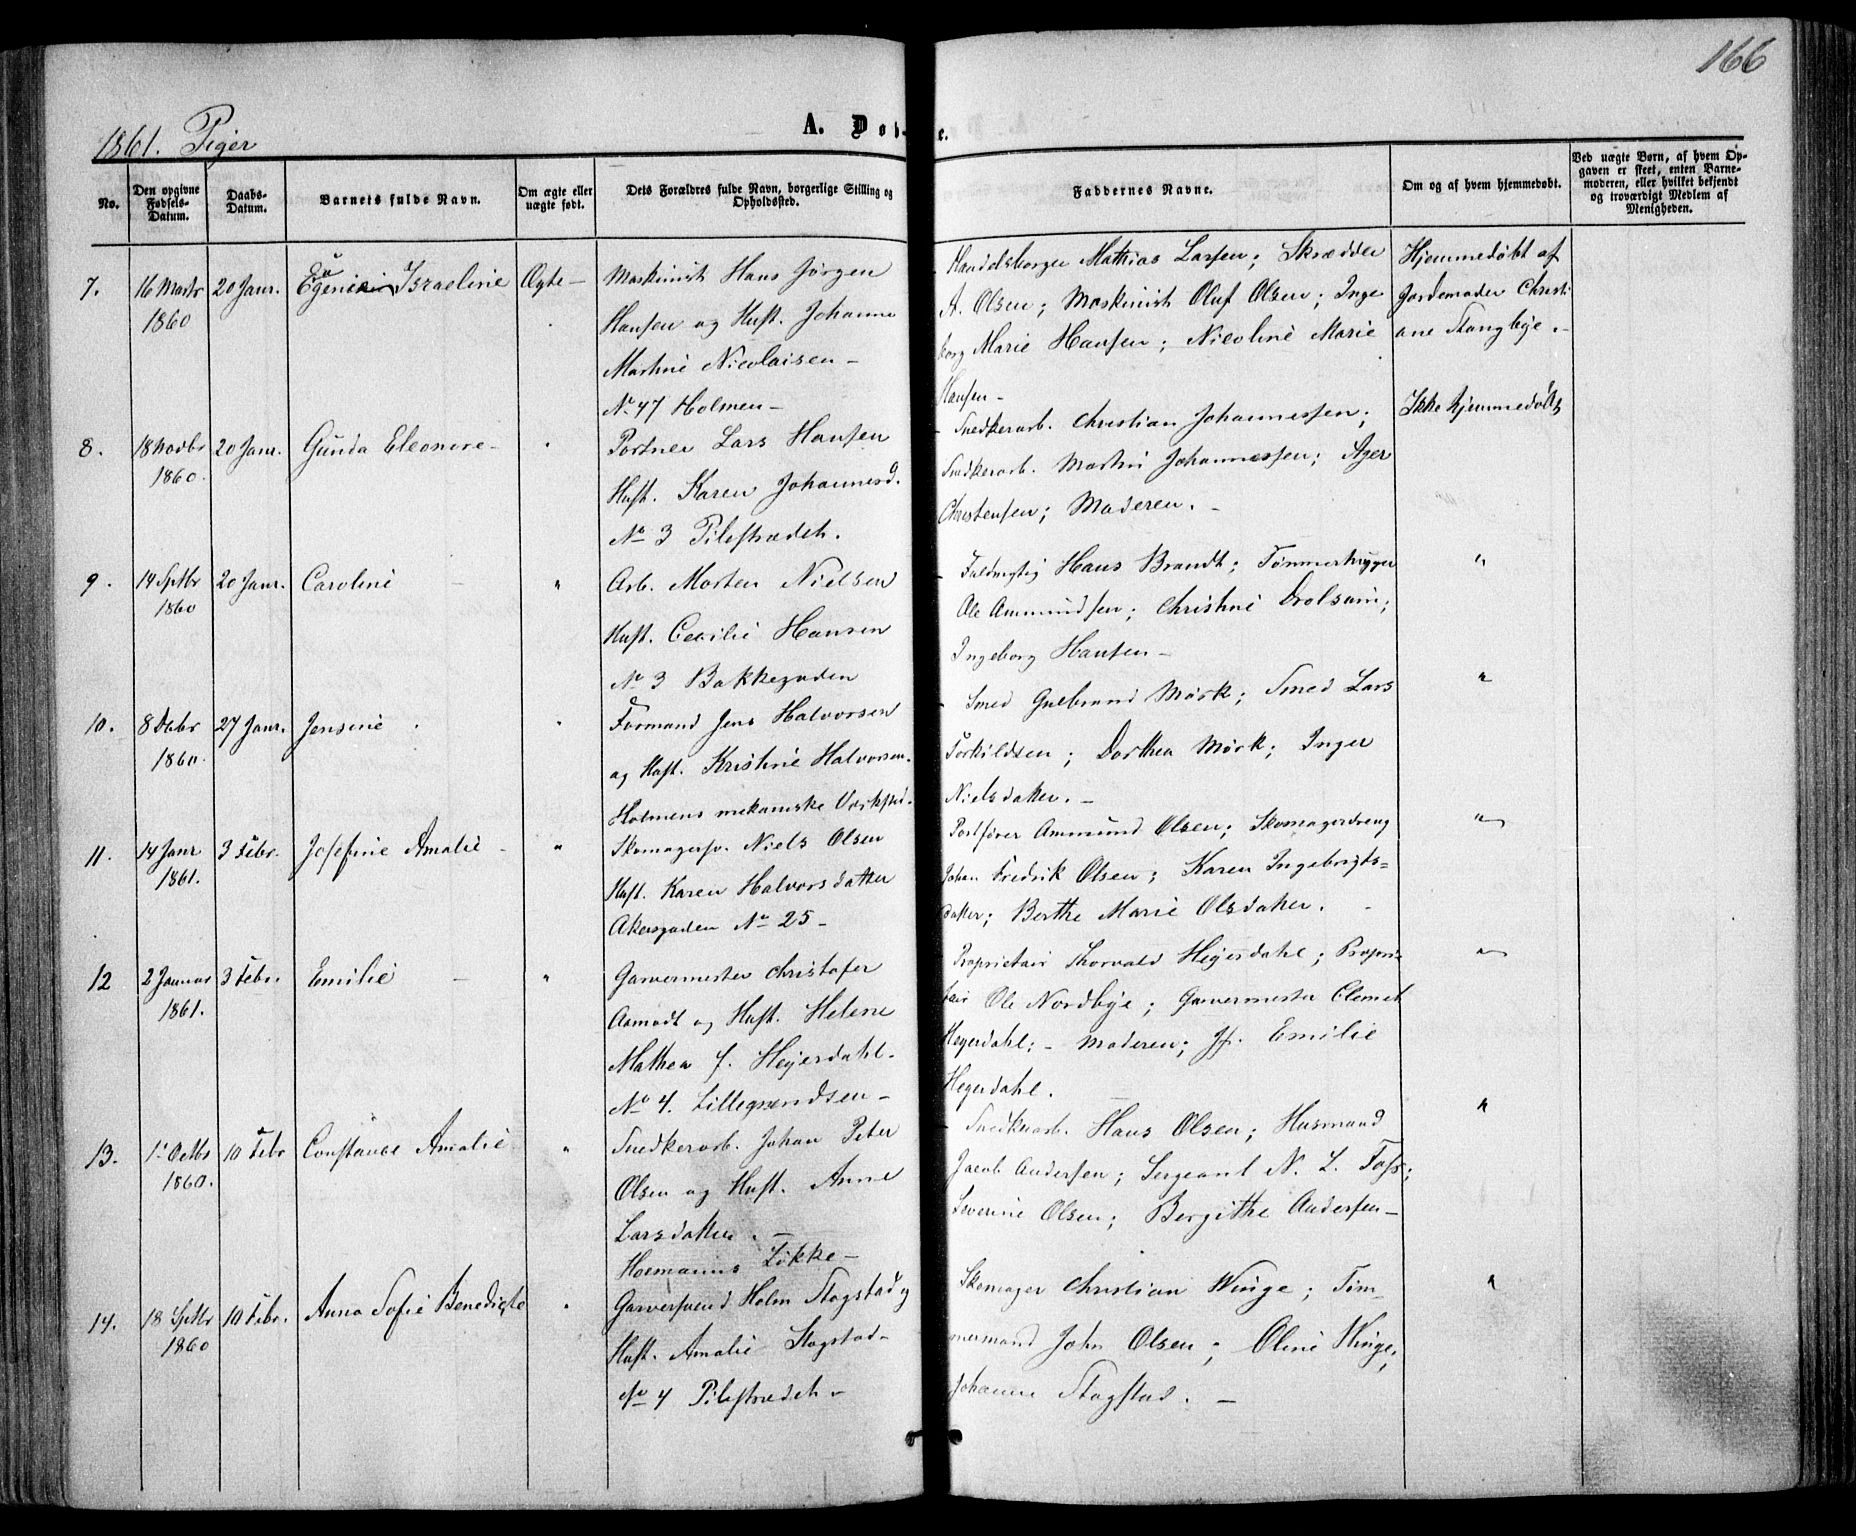 166
1861. Piger
A. Døb-
e.
No.
Den opgivne Fødsels-Datum.
Daabs-Datum.
Barnets fulde Navn.
Om ægte eller uægte født.
Dets Forældres fulde Navn, borgerlige Stilling og Opholdssted.
Faddernes Navne.
Om og af hvem hjemmedøbt.
Ved uægte Børn, af hvem Opgaven er skeet, enten Barnemoderen, eller hvilket bekjendt og troværdigt Medlem af Menigheden.
7.
16 
1860
20 Janr.
Israeline
Ægte
Maskinist Hans Jørgen
Hansen og Hust. Johanne
Martine Nicolaisen
No 47 Holmen
Handelsborger Mathias Larsen; Skrædder
A. Olsen; Maskinist Oluf Olsen; Inge
borg Marie Hansen; Nicoline Marie
Hansen
Hjemmedøbt af
Jordemoder Christi
ane Stangbye.
8.
18 Novbr
1860.
20 Janr.
Gunda Eleonore
Portner Lars Hansen
Hust. Karen Johannesd.
No 3 Pilestrædet.
Snedkerarb. Christian Johannessen;
Snedkerarb. Martin Johannessen; Ager
Christensen; Moderen.
Ikke hjemmedøbt
9.
14 Sptbr
1860
20 Janr.
Caroline
"
Arb. Morten Nielsen
Hust. Cecilie Hansen
No 3 Bakkegaden
Hans Brandt; Tømmerhugger
Ole Ammundsen; Christine Drolsum;
Ingeborg Hansen
"
10.
8 Dcbr
1860.
27 Janr.
Jensine
"
Formand Jens Halvorsen
og Hust. Kristine Halvorsen.
Holmens mekaniske Værksted.
Smed Gulbrand Mørk; Smed Lars
Torkildsen; Dorthea Mørk; Inger
Nielsdatter.
"
11.
14 Janr
1861.
3 Febr.
Josefine Amalie
"
Skomagersv. Niels Olsen
Hust. Karen Halvorsdatter
Akersgaden No 25
Postfører Ammund Olsen; Skomagerdreng
Johan Fredrik Olsen; Karen Ingebrigts=
datter; Berthe Marie Olsdatter.
"
12
2 Januar
1861.
3 Febr.
Emilie
"
Garvermester Christofer
Aamodt og Hust. Helene
Mathea f. Heyerdahl.
No 4.
Proprietair Thorvald Heyerdahl; Propri
tair Ole Nordbye; Garvermester Clemet
Heyerdahl; Moderen; Jf. Emilie
Heyerdahl.
"
13.
1' Octbr
1860.
10 Febr
Constance Amalie
"
Snedkerarb. Johan Peter
Olsen og Hust. Anne
Larsdatter.
Hermanns Løkke
Snedkerarb. Hans Olsen; Husmand
Jacob Andersen; Sergeant N. L. Foss;
Severine Olsen; Bergithe Andersen
"
14.
18 Sptbr
1860
10 Febr.
Anna Sofie Benedicte
"
Garversvend Holm Stagstad og
Hust. Amalie Stagstad
No 4 Pilestrædet
Skomager Christian Winge; Tøm
mermand John Olsen; Oline Winge;
Johanne Stagstad.
"